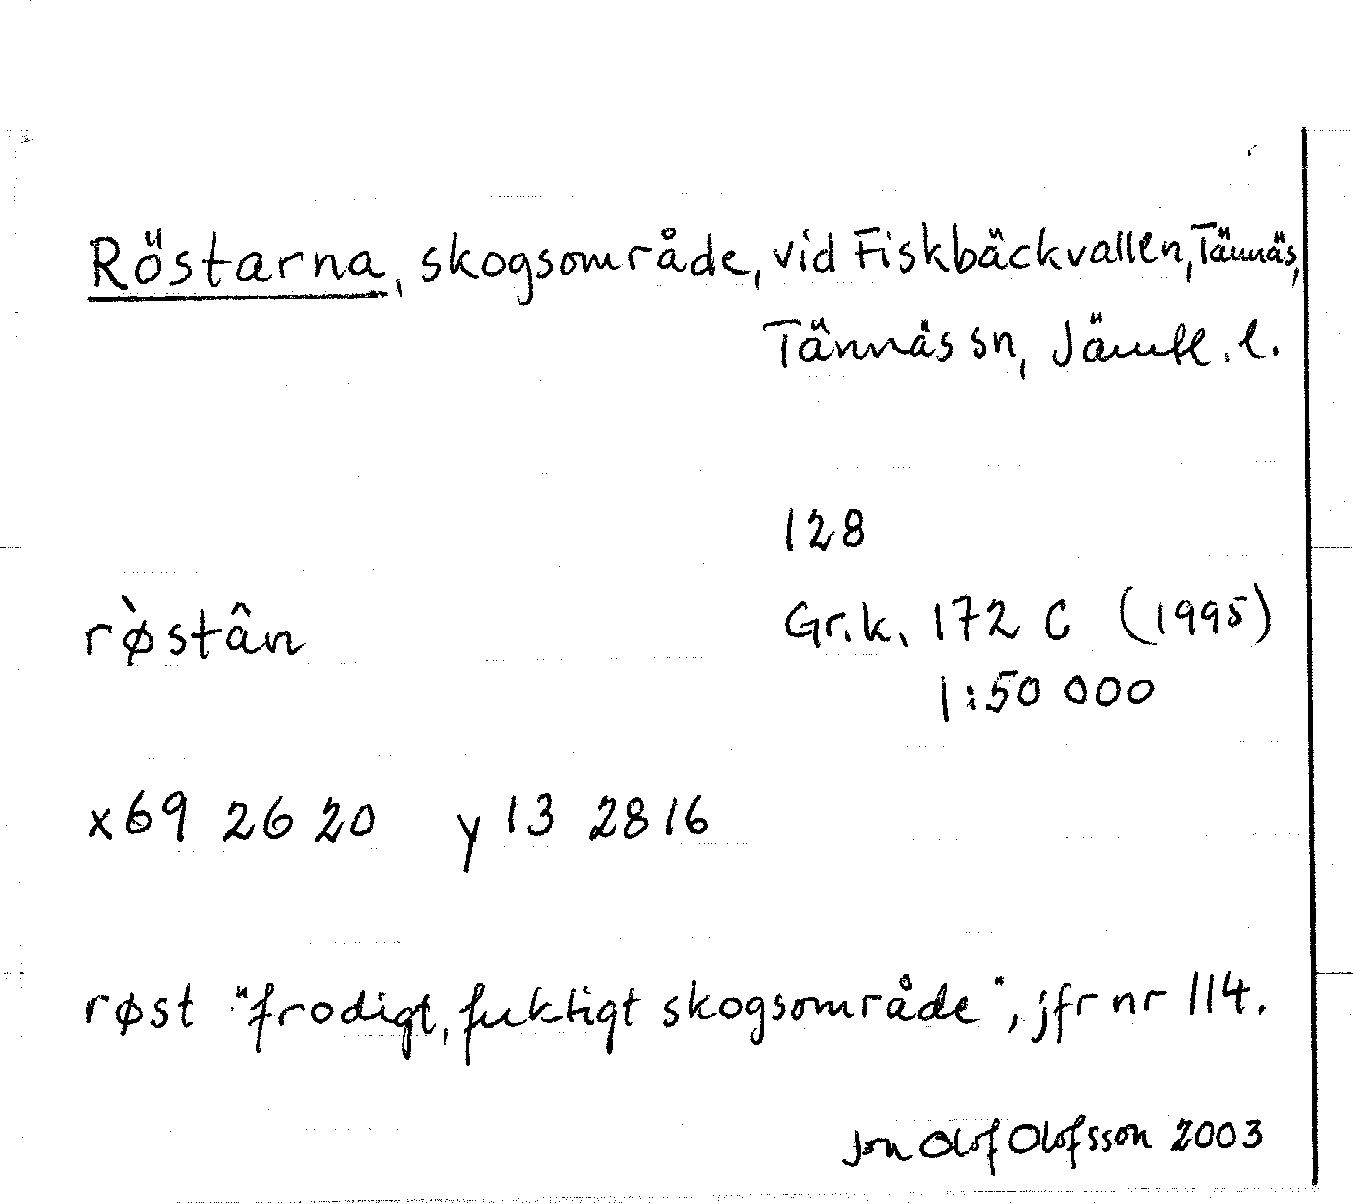 Röstarna, skogsområde, vid Fiskbäckvallen, Tännäs,
Tännäs sn, Jämtl. l.
128
rø̀stân Gr.k. 172 C (1995)
1:50 000
x69 26 20 y 13 28 16
røst "frodigt, fuktigt skogsområde", jfr nr 114.
Jon Olof Olofsson 2003